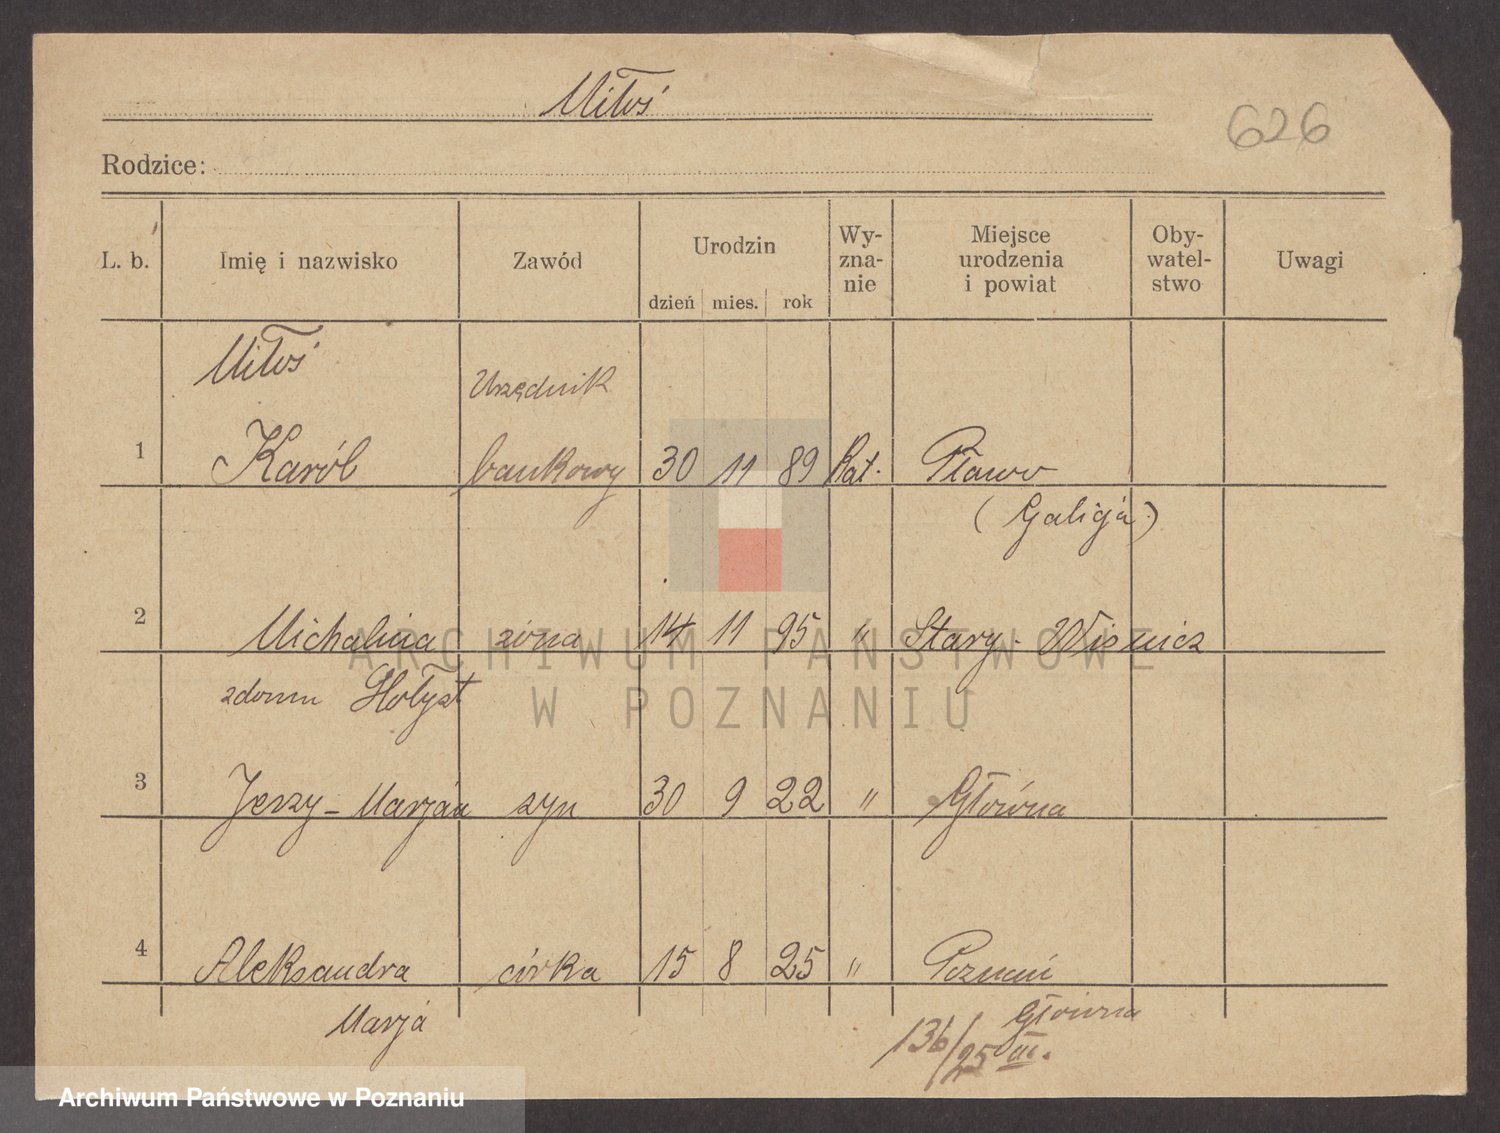 Miłoś
626
Rodzice:
L. b. Imię i nazwisko Zawód Urodzin dzień mies. rok Wy-zna-nie Miejsce urodzenia i powiat Oby-watel-stwo Uwagi
Miłoś Urzędnik
1 Karól bankowy 30 11 89 Kat. Pławo
(Galicja)
2 Michalina żona 14 11 95 " Stary-Wiśnicz
zdomu Hołyst
3 Jerzy-Marjan syn 30 9 22 " Główna
4 Aleksandra córka 15 8 25 " Poznań
Marja Główna
136/25 III.
ARCHIWUM PAŃSTWOWE
W POZNANIU
Archiwum Państwowe w Poznaniu